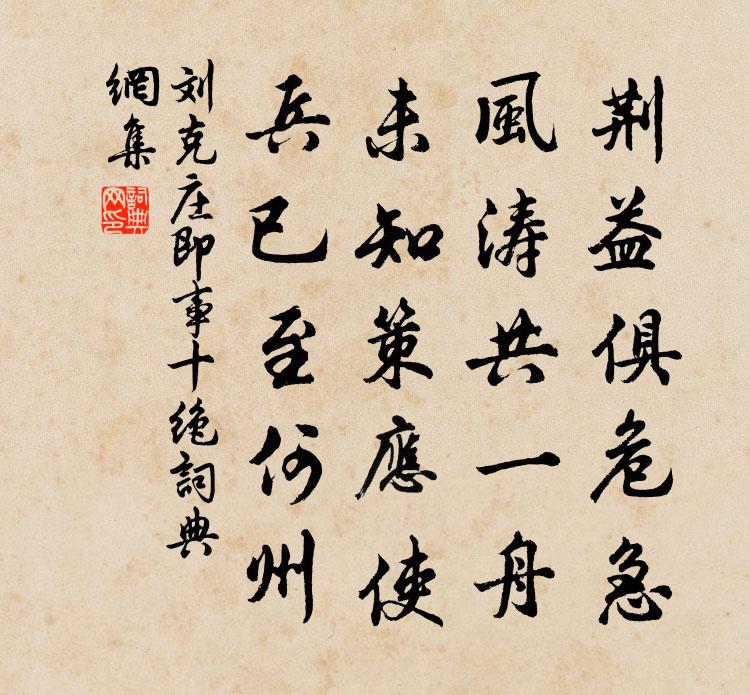 荆益俱危急
風濤共一舟
未知策應使
兵已至何州
刘克庄即事十絶詞典
網集
詞典網印